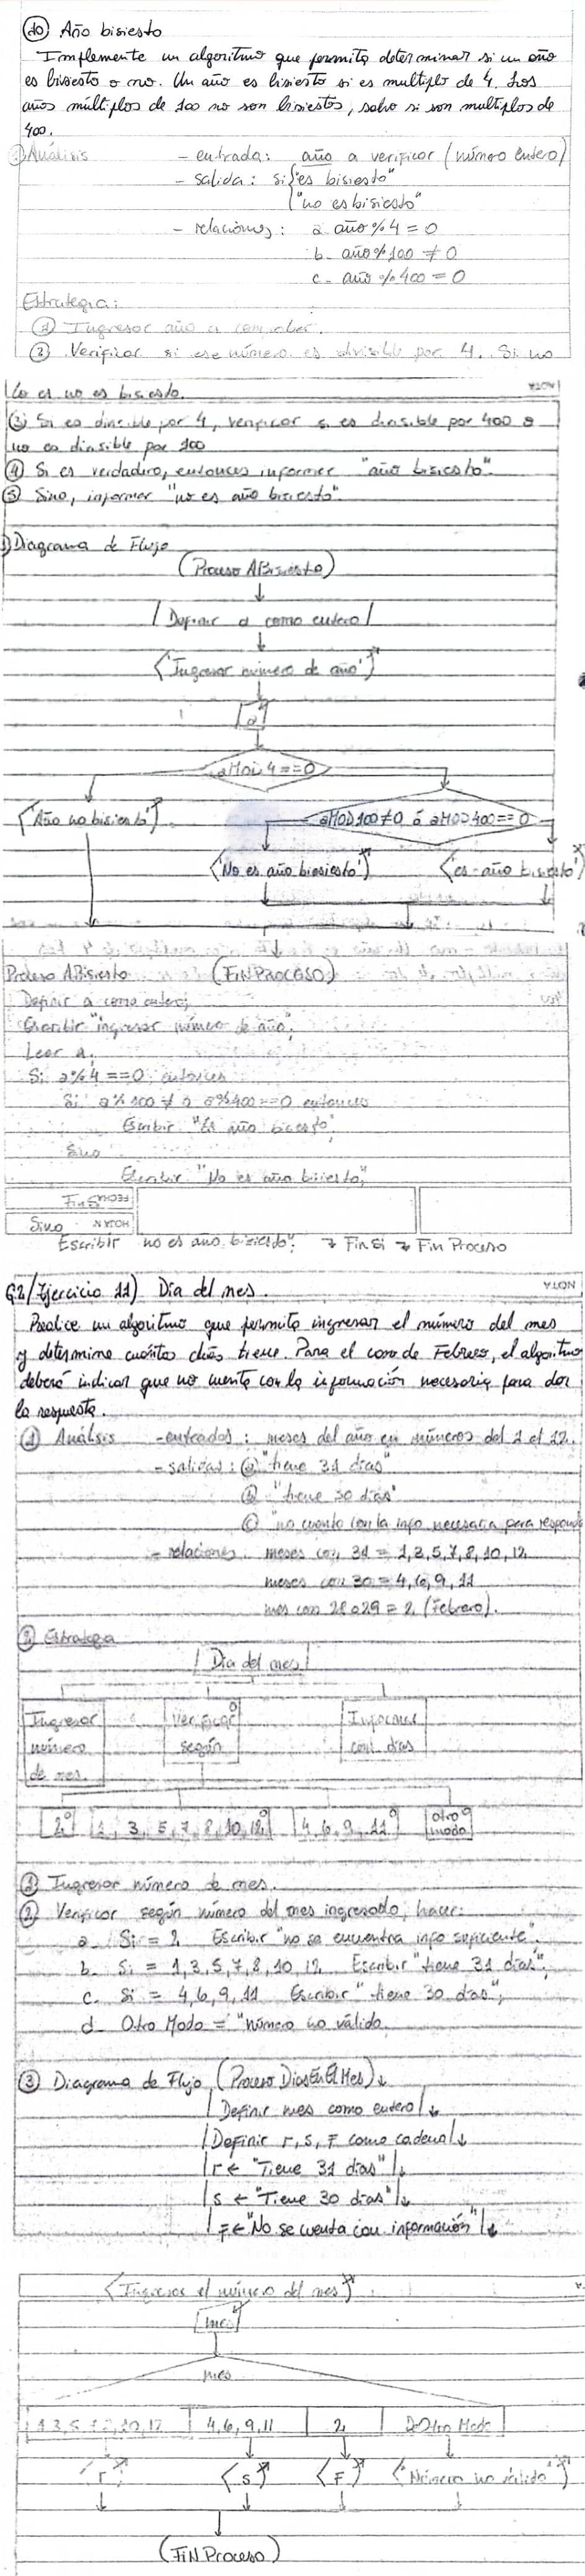 (10) Año bisiesto
Implemente un algoritmo que permita determinar si un año
es bisiesto o no. Un año es bisiesto si es multiplo de 4. Los
años múltiplos de 100 no son bisiestos, salvo si son multiplos de
400.
① Análisis - entrada: año a verificar (número entero)
- salida: si { "es bisiesto"
"no es bisiesto"
- relaciones: a. año % 4 = 0
b. año % 100 ≠ 0
c. año % 400 = 0
Estrategia:
① Ingresar año a comprobar.
② Verificar si ese número es divisible por 4. Si no
lo es no es bisiesto.
NOTA
③ Si es divisible por 4, verificar si es divisible por 400 o
no es divisible por 100
④ Si es verdadero, entonces informar "año bisiesto".
⑤ Sino, informar "no es año bisiesto".
Diagrama de Flujo
(Proceso ABisiesto)
/ Definir a como entero /
'Ingresar número de año'
a
a MOD 4 == 0
'Año no bisiesto'
a MOD 100 ≠ 0 ó a MOD 400 == 0
'No es año bisiesto'
'es año bisiesto'
Proceso ABisiesto (FINPROCESO)
Definir a como entero;
Escribir "ingresar número de año";
Leer a;
Si a % 4 == 0 entonces
Si a % 100 ≠ 0 a % 400 == 0 entonces
Escribir "Es año bisiesto";
Sino
Escribir "No es año bisiesto";
FinSi FECHA
Sino HOJA N
Escribir no es ano bisiesto"; → FinSi → Fin Proceso
G2/Ejercicio 11) Día del mes.
NOTA
Realice un algoritmo que permita ingresar el número del mes
y determine cuántos días tiene. Para el caso de Febrero, el algoritmo
deberá indicar que no cuenta con la información necesaria para dar
la respuesta.
① Análisis - entradas: meses del año en números del 1 al 12.
- salidas: ⓐ "tiene 31 días"
ⓑ "tiene 30 días"
ⓒ "no cuento con la info necesaria para responder
- relaciones. meses con 31 = 1,3,5,7,8,10,12
meses con 30 = 4,6,9,11
mes con 28 o 29 = 2 (Febrero).
② Estrategia
/ Día del mes /
Ingresar número de mes.
Verificar según
Informar cant días
2
1, 3, 5, 7, 8, 10, 12
4, 6, 9, 11
otro modo
① Ingresar número de mes.
② Verificar según número del mes ingresado, hacer:
a. Si = 2 Escribir "no se encuentra info suficiente".
b. Si = 1,3,5,7,8,10,12 Escribir "tiene 31 días";
c. Si = 4,6,9,11 Escribir "tiene 30 días";
d Otro Modo = "número no válido.
③ Diagrama de Flujo (Proceso DiasEnElMes) ↓
/ Definir mes como entero / ↓
/ Definir r, s, F como cadena / ↓
/ r ← "Tiene 31 días" / ↓
/ s ← "Tiene 30 días" / ↓
/ F ← "No se cuenta con información" / ↓
'Ingresar el número del mes'
mes
mes
1,3,5,7,8,10,12
4,6,9,11
2
De Otro Modo
r
s
F
"Número no válido"
(FIN Proceso)